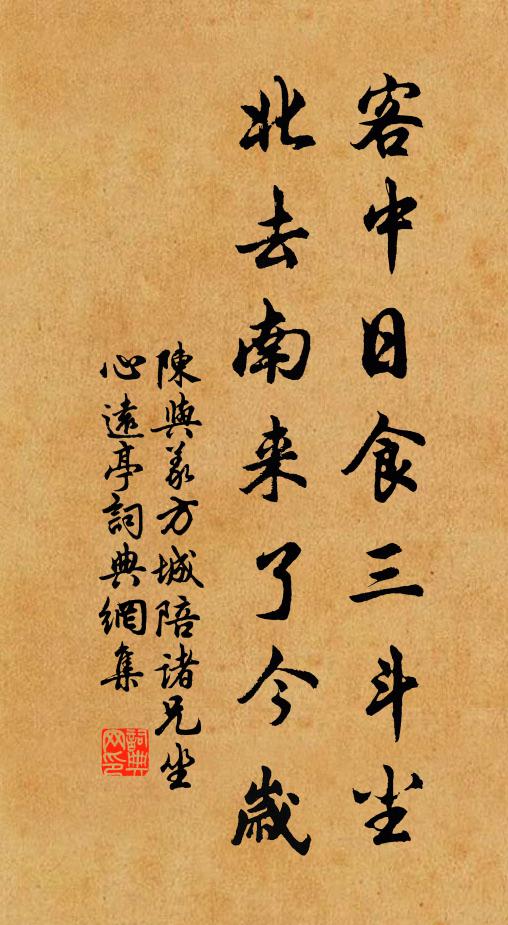 客中日食三斗尘
北去南来了今歲
陳與義方城陪诸兄坐
心遠亭詞典網集
詞典网印